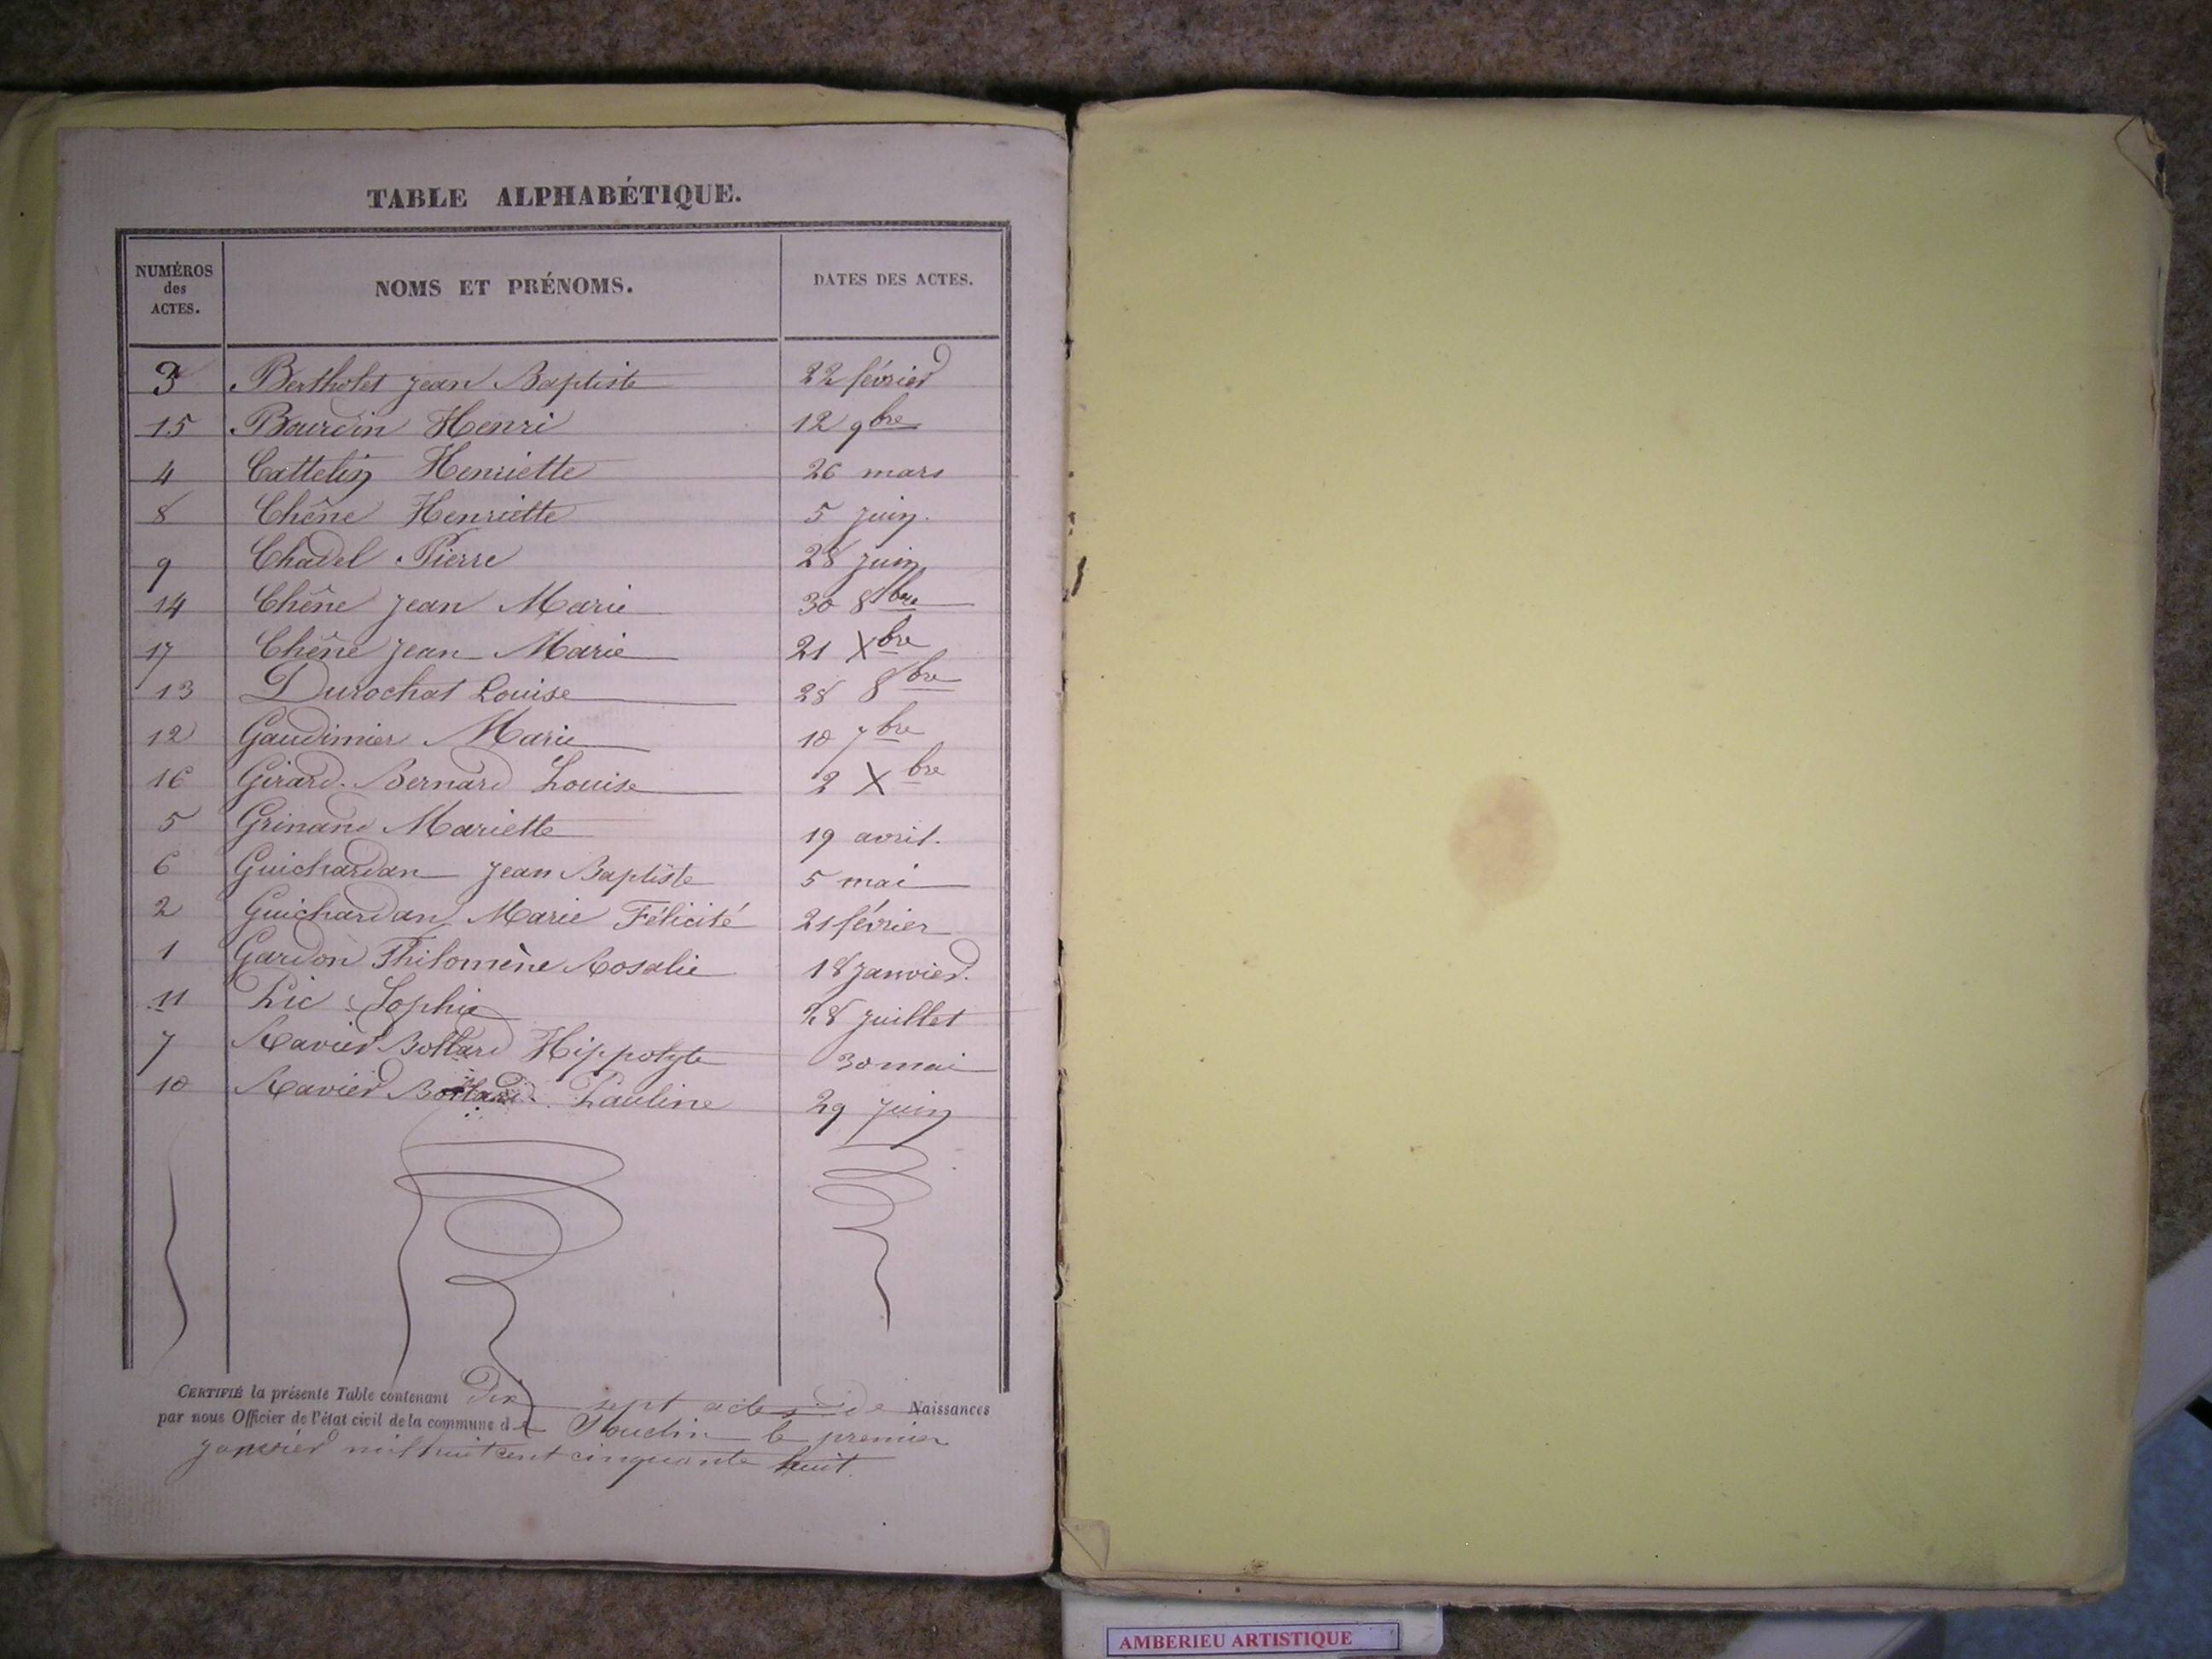 TABLE ALPHABÉTIQUE.
NUMÉROS des ACTES. NOMS ET PRÉNOMS. DATES DES ACTES.
3 Bertholet Jean Baptiste 22 février
15 Bourdin Henri 12 9bre
4 Cattelin Henriette 26 mars
8 Chêne Henriette 5 juin.
9 Chadel Pierre 28 juin
14 Chêne Jean Marie 30 8bre
17 Chêne Jean Marie 21 Xbre
13 Durochat Louise 28 8bre
12 Gaudinier Marie 10 7bre
16 Girard-Bernard Louise 2 Xbre
5 Grinand Mariette 19 avril.
6 Guichardan Jean Baptiste 5 mai
2 Guichardan Marie Félicité 21 février
1 Gardon Philomène Rosalie 18 janvier.
11 Pic Sophie 28 juillet
7 Ravier Bollard Hippolyte 30 mai
10 Ravier Bollard Pauline 29 juin
CERTIFIÉ la présente Table contenant dix sept actes de Naissances
par nous Officier de l'état civil de la commune de le premier
janvier mil huit cent cinquante huit.
AMBERIEU ARTISTIQUE